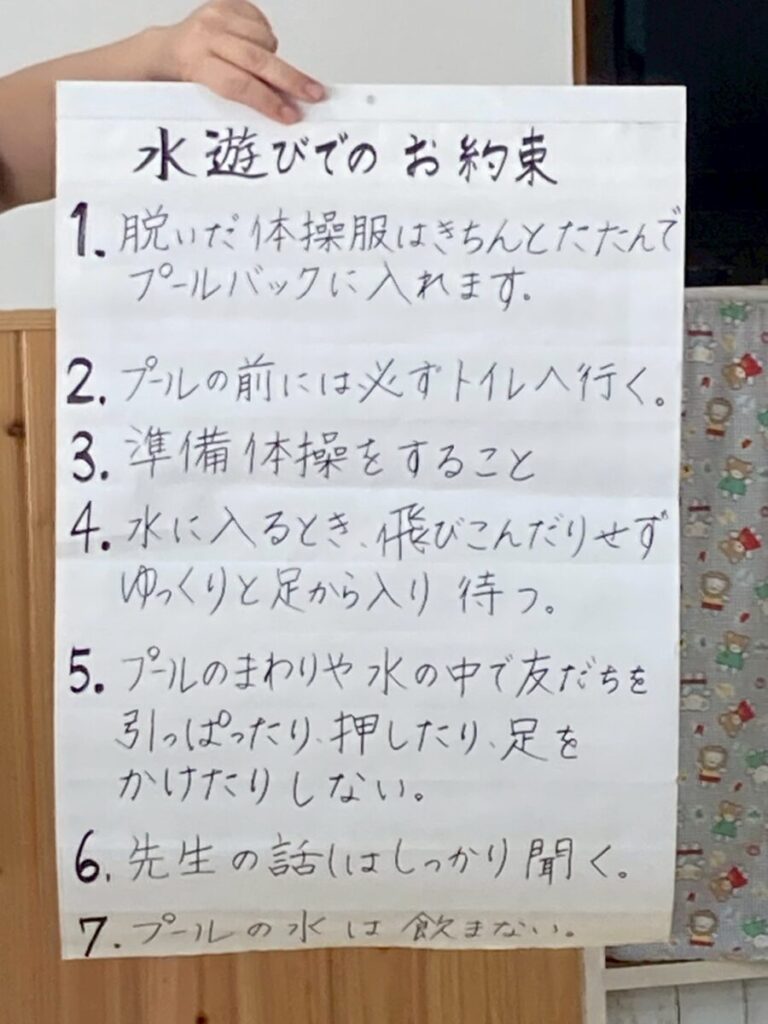 水遊びでのお約束
1. 脱いだ体操服はきちんとたたんで
プールバックに入れます。
2. プールの前には必ずトイレへ行く。
3. 準備体操をすること
4. 水に入るとき、飛びこんだりせず
ゆっくりと足から入り待つ。
5. プールのまわりや水の中で友だちを
引っぱったり、押したり、足を
かけたりしない。
6. 先生の話しはしっかり聞く。
7. プールの水は飲まない。